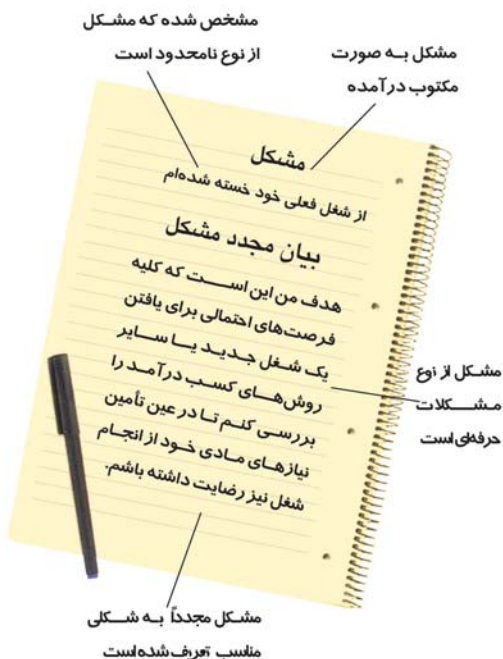 مشخص شده که مشکل
از نوع نامحدود است
مشکل به صورت
مکتوب درآمده
مشکل
از شغل فعلی خود خسته شده‌ام
بیان مجدد مشکل
هدف من این است که کلیه
فرصت‌های احتمالی برای یافتن
یک شغل جدید یا سایر
روش‌های کسب درآمد را
بررسی کنم تا در عین تأمین
نیازهای مادی خود از انجام
شغل نیز رضایت داشته باشم.
مشکل از نوع
مشکلات
حرفه‌ای است
مشکل مجدداً به شکلی
مناسب تعریف شده است